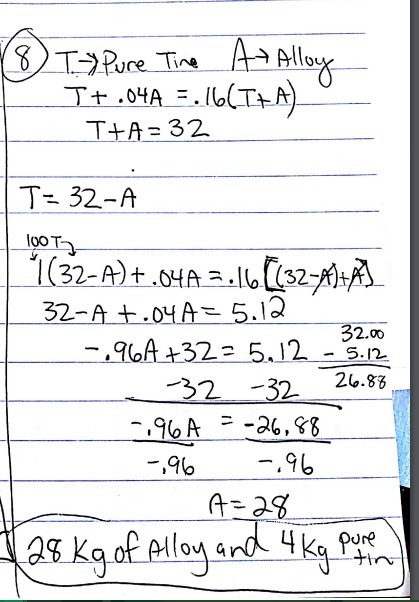 8 T→Pure Tine A→Alloy
T+ .04A = .16(T+A)
T+A=32
T= 32-A
100T
1(32-A)+.04A=.16[(32-A)+A]
32-A+.04A= 5.12
-.96A+32= 5.12
32.00
- 5.12
26.88
-32 -32
-.96A = -26.88
-.96 -.96
A=28
28 Kg of Alloy and 4Kg pure
tin